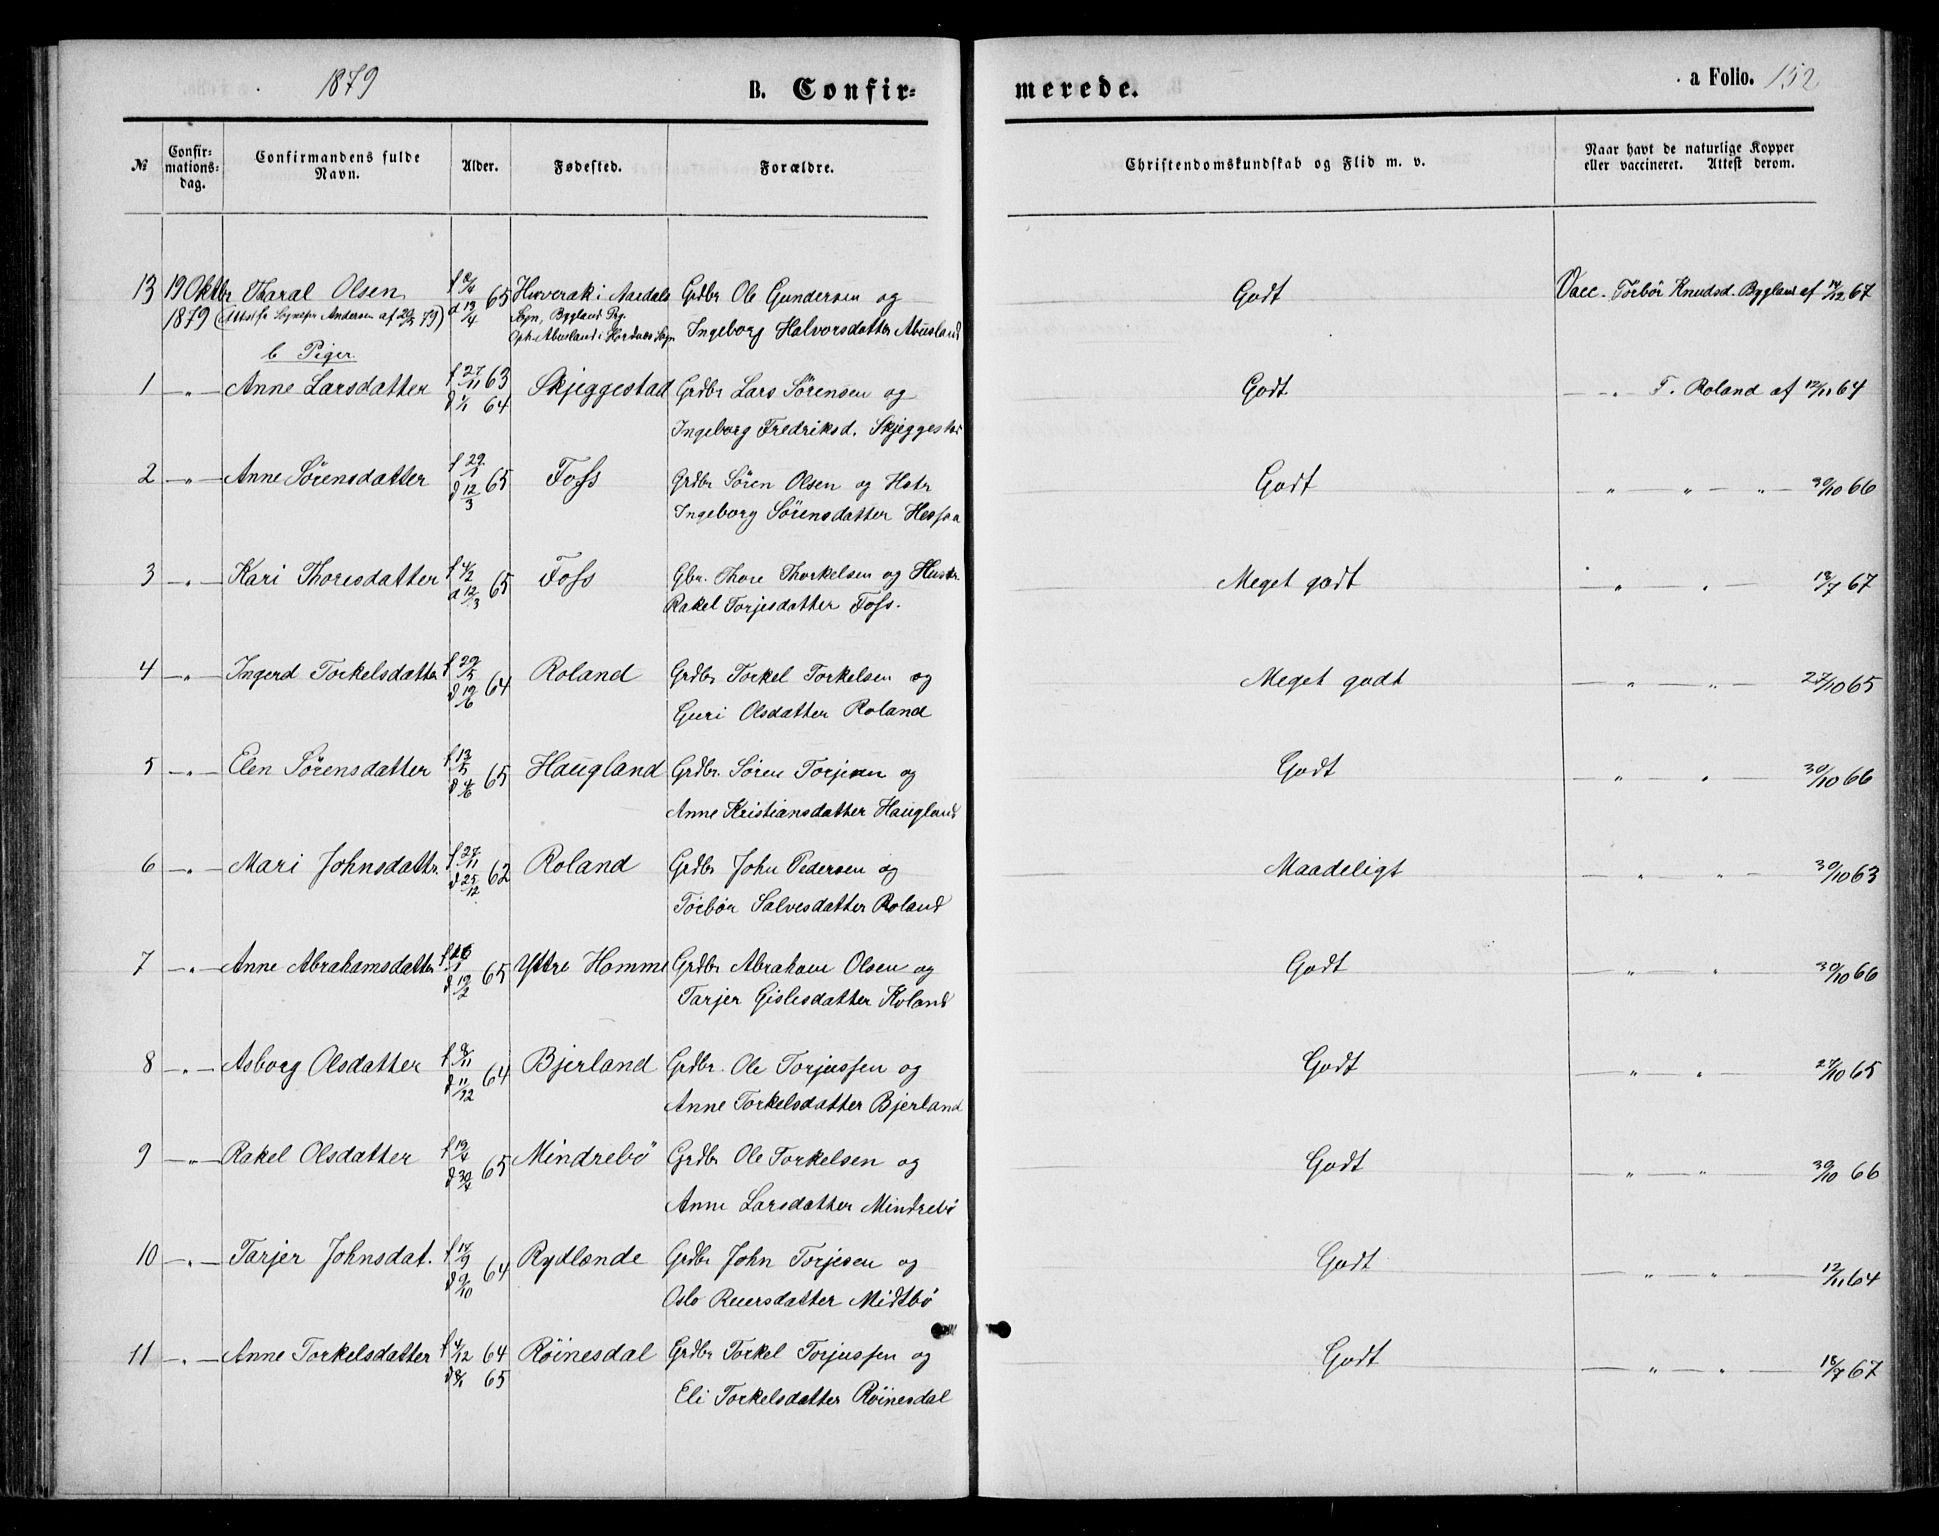 1879
B. Confir=
merede.
a Folio. 152
№
Confir=
mations-
dag.
Confirmandens fulde
Navn.
Alder.
Fødested.
Forældre.
Christendomskundskab og Flid m. v.
Naar havt de naturlige Kopper
eller vaccineret. Attest derom.
13 19 Oktbr Tharal Olsen f 65 Huverak i Aardals Grdbr Ole Gundersen og Godt Vacc. Torbör Knudsd. Bygland af 14/12 67
1879 Andersen af 79) d 13/4 Sogn, Bygland Pg. Ingeborg Halvorsdatter Abusland
Oph. Abusland i Hordnes Sogn
b Piger.
1 -„- Anne Larsdatter f 27/11 63 Skjeggestad Grdbr Lars Sörensen og Godt -„- T. Roland af 12/11 64
d 1/1 64 Ingeborg Fredriksd. Skjeggestad
2 -„- Anne Sörensdatter f 29/1 65 Foss Grdbr Sören Olsen og Hstr Godt -„-„-„- 30/10 66
d 12/3 Ingeborg Sörensdatter
3 -„- Kari Thoresdatter f 4/2 65 Foss Gbr. Thore Thorkelsen og Hustr. Meget godt „ „ 18/7 67
d 12/3 Rakel Torjesdatter Foss.
4 -„- Ingerd Torkelsdatter f 29/5 64 Roland Grdbr Torkel Torkelsen og Meget godt -„-„- 27/10 65
d 19/6 Guri Olsdatter Roland
5 -„- Elen Sörensdatter f 13/5 65 Haugland Grdbr. Sören Torjesen og Godt -„-„- 30/10 66
d 4/6 Anne Kristiansdatter Haugland
6 -„- Mari Johnsdattr. f 27/11 62 Roland Grdbr John Pedersen og Maadeligt „ „ 30/10 63
d 25/12 Torbör Salvesdatter Roland
7 -„- Anne Abrahamsdatter f 65 Yttre Homme Grdbr Abraham Olsen og Godt „ „ 30/10 66
d 19/2 Tarjer Gislesdatter Roland
8 -„- Asborg Olsdatter f 8/11 64 Bjerland Grdbr. Ole Torjussen og Godt -„-„- 27/10 65
d 11/12 Anne Torkelsdatter Bjerland
9 -„- Rakel Olsdatter f 19/4 65 Mindrebö Grdbr Ole Torkelsen og Godt -„-„- 30/10 66
d 30/4 Anne Larsdatter Mindrebö
10 -„- Tarjer Johnsdat. f 17/9 64 Rydlende Grdbr John Torjesen og Godt -„-„- 12/11 64
d 9/10 Oslo Reiersdatter Midtbö
11 -„- Anne Torkelsdatter f 4/12 64 Röinesdal Grdbr Torkel Torjussen og Godt -„-„- 18/7 67
d 8/1 65 Eli Torkelsdatter Röinesdal